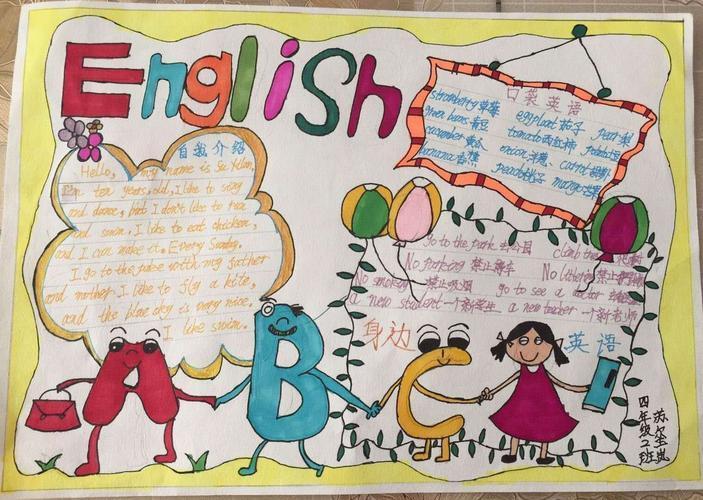 English
自我介绍
Hello, my name is Su
I'm ten years old, I like to sing
and dance, but I don't like to run
and swim. I like to eat chicken,
and I can make it. Every Sunday.
I go to the with my father
and mother. I like to fly a kite,
and the blue sky is very nice.
I like swim.
口袋英语
strawberry 草莓 eggplant 茄子 pear 梨
green beans 青豆 tomato 西红柿
cucumber 黄瓜 onion 洋葱 carrot
banana 香蕉 peach 桃子 mango 芒果
go to the park 去公园 climb
No parking 禁止停车 No littering 禁止
No smoking 禁止吸烟 go to see a doctor
a new student 一个新学生 a new teacher 一个新老师
身边 英语
A B C
四年级2班
苏